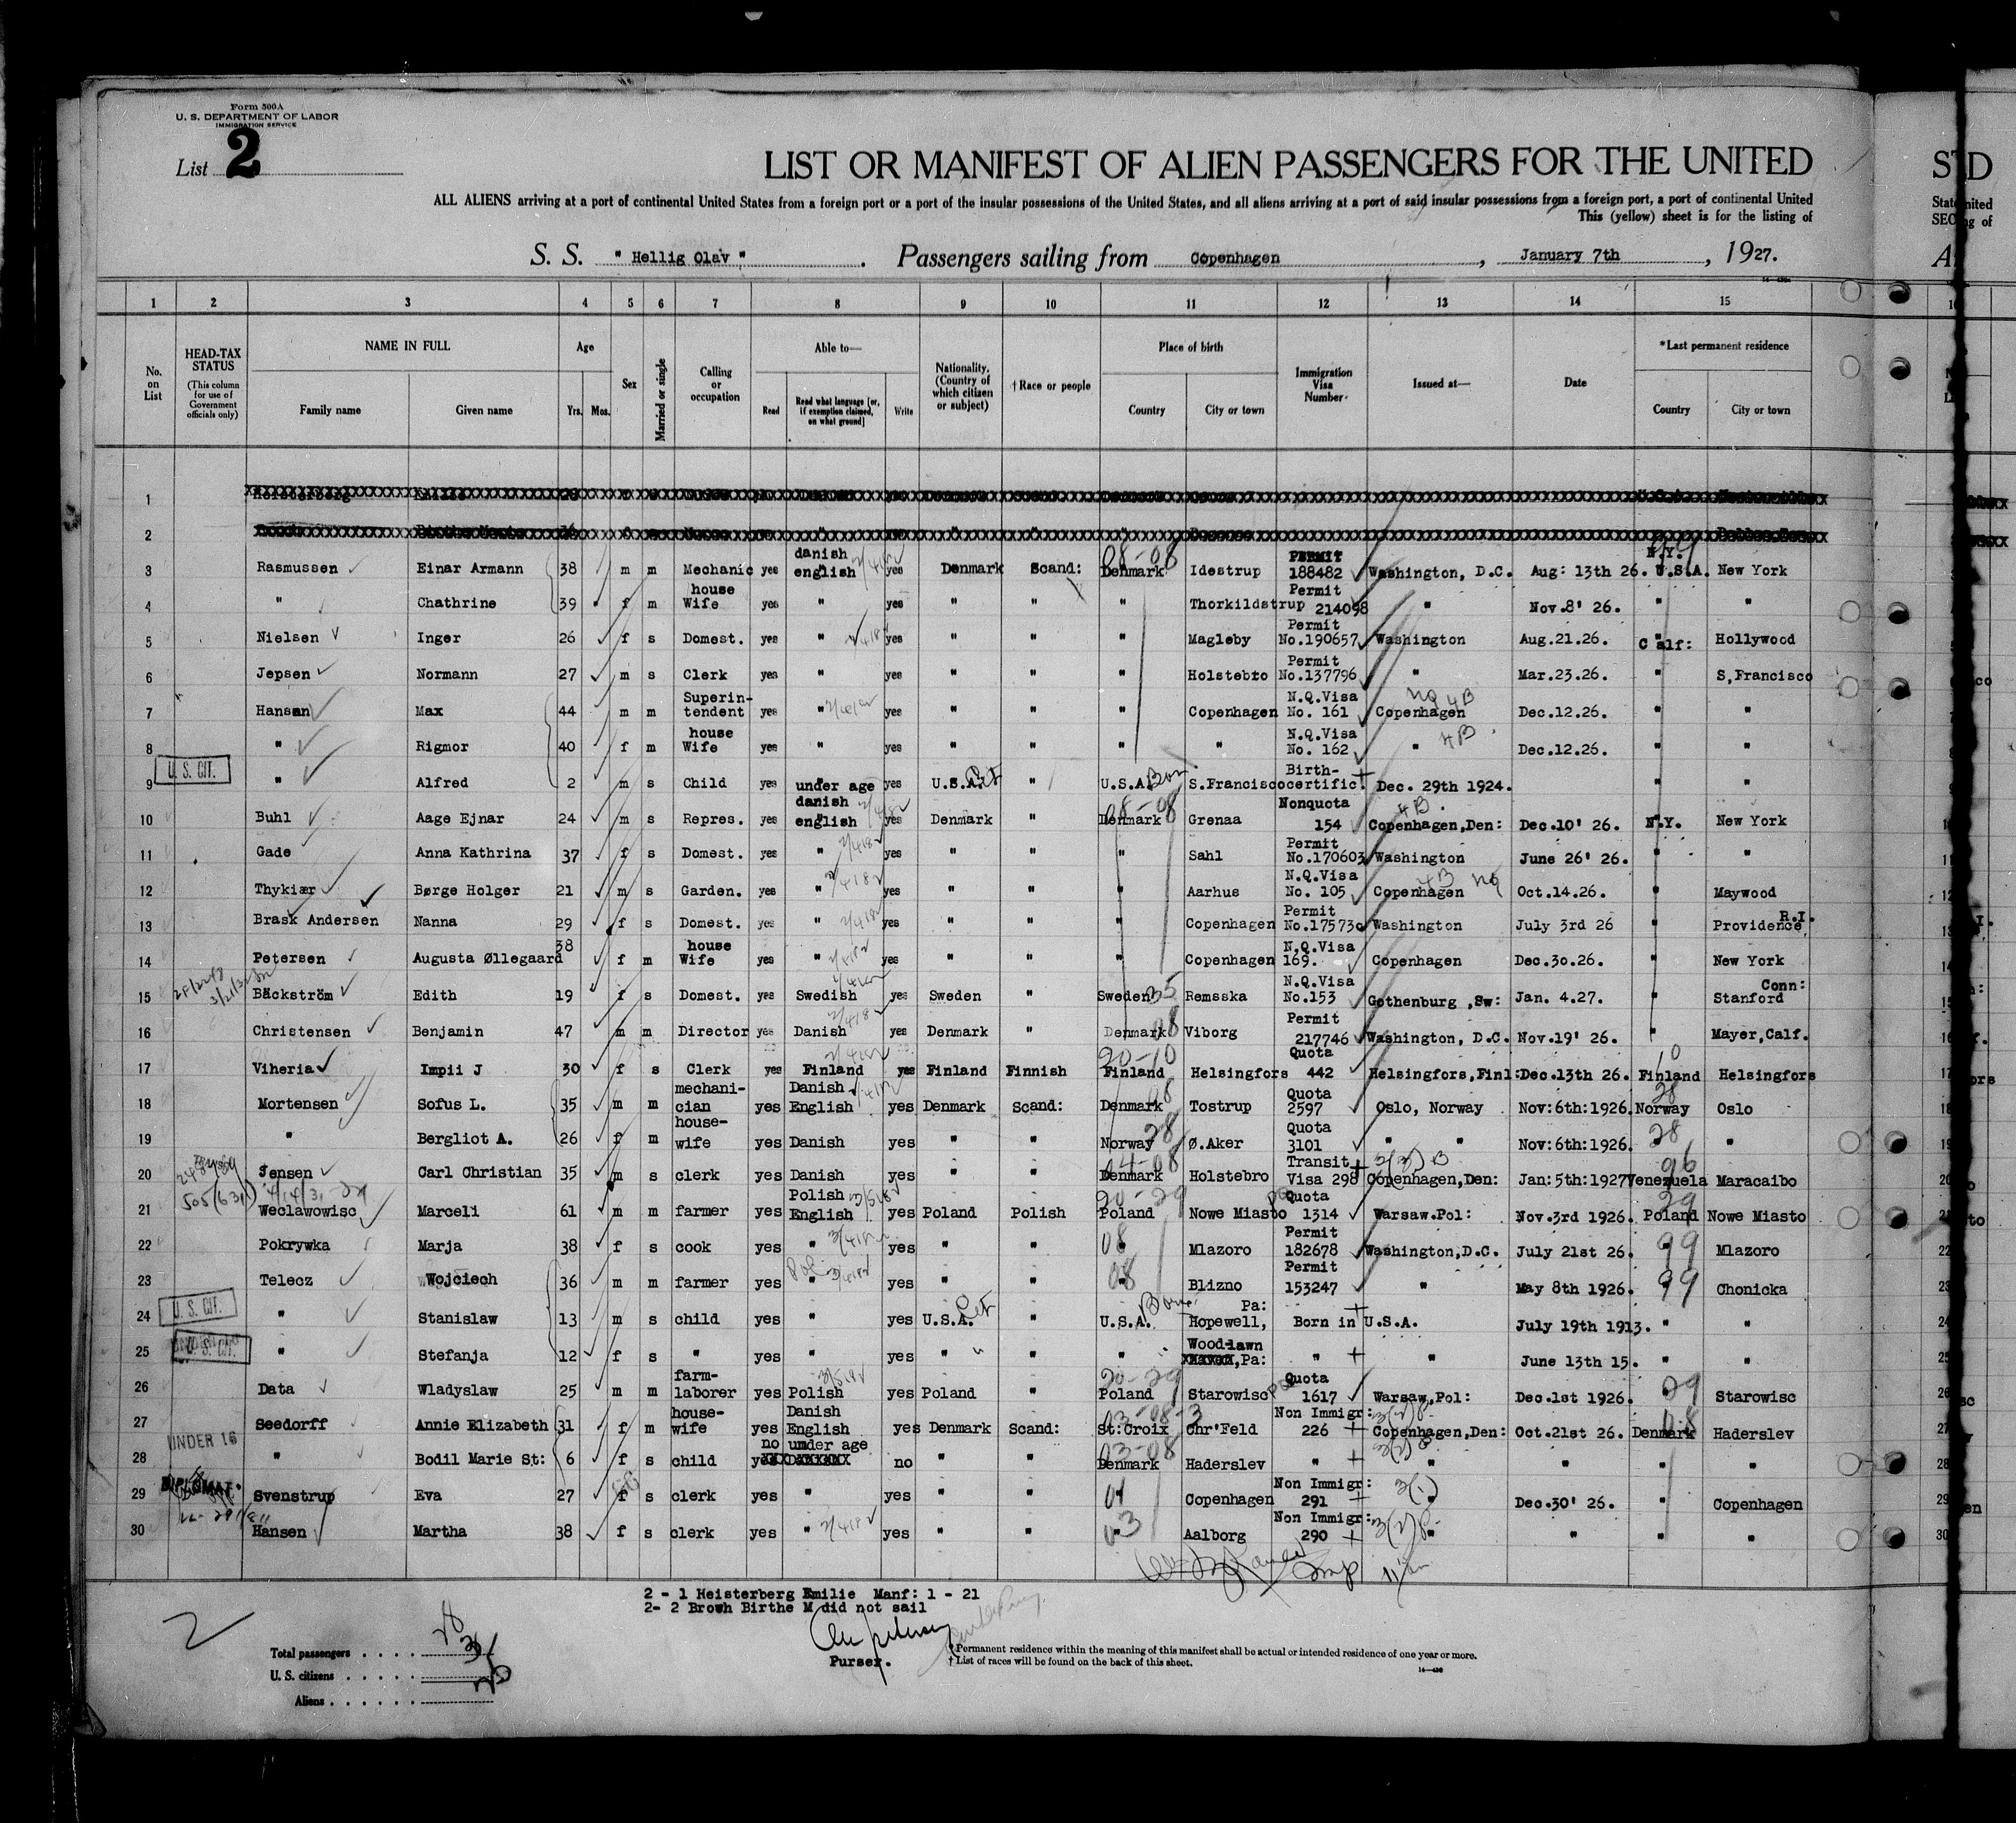 Form 500A
U. S. DEPARTMENT OF LABOR
IMMIGRATION SERVICE
List 2
LIST OR MANIFEST OF ALIEN PASSENGERS FOR THE UNITED
ALL ALIENS arriving at a port of continental United States from a foreign port or a port of the insular possessions of the United States, and all aliens arriving at a port of said insular possessions from a foreign port, a port of continental United
This (yellow) sheet is for the listing of
S. S. " Hellig Olav " . Passengers sailing from Copenhagen , January 7th , 1927.
1 2 3 4 5 6 7 8 9 10 11 12 13 14 15
No. on List
HEAD-TAX STATUS (This column for use of Government officials only)
NAME IN FULL Family name Given name
Age Yrs. Mos.
Sex
Married or single
Calling or occupation
Able to— Read Read what language [or, if exemption claimed, on what ground] Write
Nationality. (Country of which citizen or subject)
†Race or people
Place of birth Country City or town
Immigration Visa Number
Issued at—
Date
*Last permanent residence Country City or town
1
2
3 Rasmussen Einar Armann 38 m m Mechanic yes danish english yes Denmark Scand: Denmark Idestrup PERMIT 188482 Washington, D.C. Aug: 13th 26. N.Y. U.S.A. New York
4 " Chathrine 39 f m house Wife yes " yes " " " Thorkildstrup Permit 214098 " Nov.8' 26. " "
5 Nielsen Inger 26 f s Domest. yes " yes " " " Magleby Permit No.190657 Washington Aug.21.26. " Calf: Hollywood
6 Jepsen Normann 27 m s Clerk yes " yes " " " Holstebro Permit No.137796 " Mar.23.26. " S.Francisco
7 Hansen Max 44 m m Superintendent yes " yes " " " Copenhagen N.Q.Visa No. 161 Copenhagen Dec.12.26. " "
8 " Rigmor 40 f m house Wife yes " yes " " " " N.Q.Visa No. 162 " Dec.12.26. " "
U. S. CIT.
9 " Alfred 2 m s Child yes under age yes U.S.A. " U.S.A. S.Francisco Birth-certific. Dec. 29th 1924. " "
10 Buhl Aage Ejnar 24 m s Repres. yes danish english yes Denmark " Denmark Grenaa Nonquota 154 Copenhagen,Den: Dec.10' 26. N.Y. New York
11 Gade Anna Kathrina 37 f s Domest. yes " yes " " " Sahl Permit No.170603 Washington June 26' 26. " "
12 Thykiær Børge Holger 21 m s Garden. yes " yes " " " Aarhus N.Q.Visa No. 105 Copenhagen Oct.14.26. " Maywood
13 Brask Andersen Nanna 29 f s Domest. yes " yes " " " Copenhagen Permit No.17573 Washington July 3rd 26 " Providence, R.I.
14 Petersen Augusta Øllegaard 38 f m house Wife yes " yes " " " Copenhagen N.Q.Visa 169. Copenhagen Dec.30.26. " New York
15 Bäckström Edith 19 f s Domest. yes Swedish yes Sweden " Sweden Remsska N.Q.Visa No.153 Gothenburg ,Sw: Jan. 4.27. " Conn: Stanford
16 Christensen Benjamin 47 m m Director yes Danish yes Denmark " Denmark Viborg Permit 217746 Washington, D.C. Nov.19' 26. " Mayer,Calf.
17 Viheria Impii J 30 f s Clerk yes Finland yes Finland Finnish Finland Helsingfors Quota 442 Helsingfors,Finl: Dec.13th 26. Finland Helsingfors
18 Mortensen Sofus L. 35 m m mechanician yes Danish English yes Denmark Scand: Denmark Tostrup Quota 2597 Oslo, Norway Nov:6th:1926. Norway Oslo
19 " Bergliot A. 26 f m house-wife yes Danish yes " " Norway Ø.Aker Quota 3101 " " Nov:6th:1926. " "
20 Jensen Carl Christian 35 m s clerk yes Danish yes " " Denmark Holstebro Transit Visa 298 Copenhagen,Den: Jan:5th:1927 Venezuela Maracaibo
21 Weclawowisc Marceli 61 m m farmer yes Polish English yes Poland Polish Poland Nowe Miasto Quota 1314 Warsaw.Pol: Nov.3rd 1926. Poland Nowe Miasto
22 Pokrywka Marja 38 f s cook yes " yes " " " Mlazoro Permit 182678 Washington,D.C. July 21st 26. " Mlazoro
23 Telecz Wojciech 36 m m farmer yes " yes " " " Blizno Permit 153247 " May 8th 1926. " Chonicka
U. S. CIT.
24 " Stanislaw 13 m s child yes " yes U.S.A. " U.S.A. Pa: Hopewell, Born in U.S.A. July 19th 1913. " "
U. S. CIT.
25 " Stefanja 12 f s " yes " yes " " " Wood-lawn ,Pa: " " June 13th 15. " "
26 Data Wladyslaw 25 m m farm-laborer yes Polish yes Poland " Poland Starowisc Quota 1617 Warsaw,Pol: Dec.1st 1926. " Starowisc
27 Seedorff Annie Elizabeth 31 f m house-wife yes Danish English yes Denmark Scand: St:Croix Chr'Feld Non Immigr: 226 Copenhagen,Den: Oct.21st 26. Denmark Haderslev
UNDER 16
28 " Bodil Marie St: 6 f s child no under age no " " Denmark Haderslev " " " " "
DIPLOMAT.
29 Svenstrup Eva 27 f s clerk yes " yes " " " Copenhagen Non Immigr: 291 " Dec.30' 26. " Copenhagen
30 Hansen Martha 38 f s clerk yes " yes " " " Aalborg Non Immigr: 290 " " " "
2 - 1 Heisterberg Emilie Manf: 1 - 21
2- 2 Browh Birthe M did not sail
Purser.
Total passengers
U. S. citizens
Aliens
* Permanent residence within the meaning of this manifest shall be actual or intended residence of one year or more.
† List of races will be found on the back of this sheet.